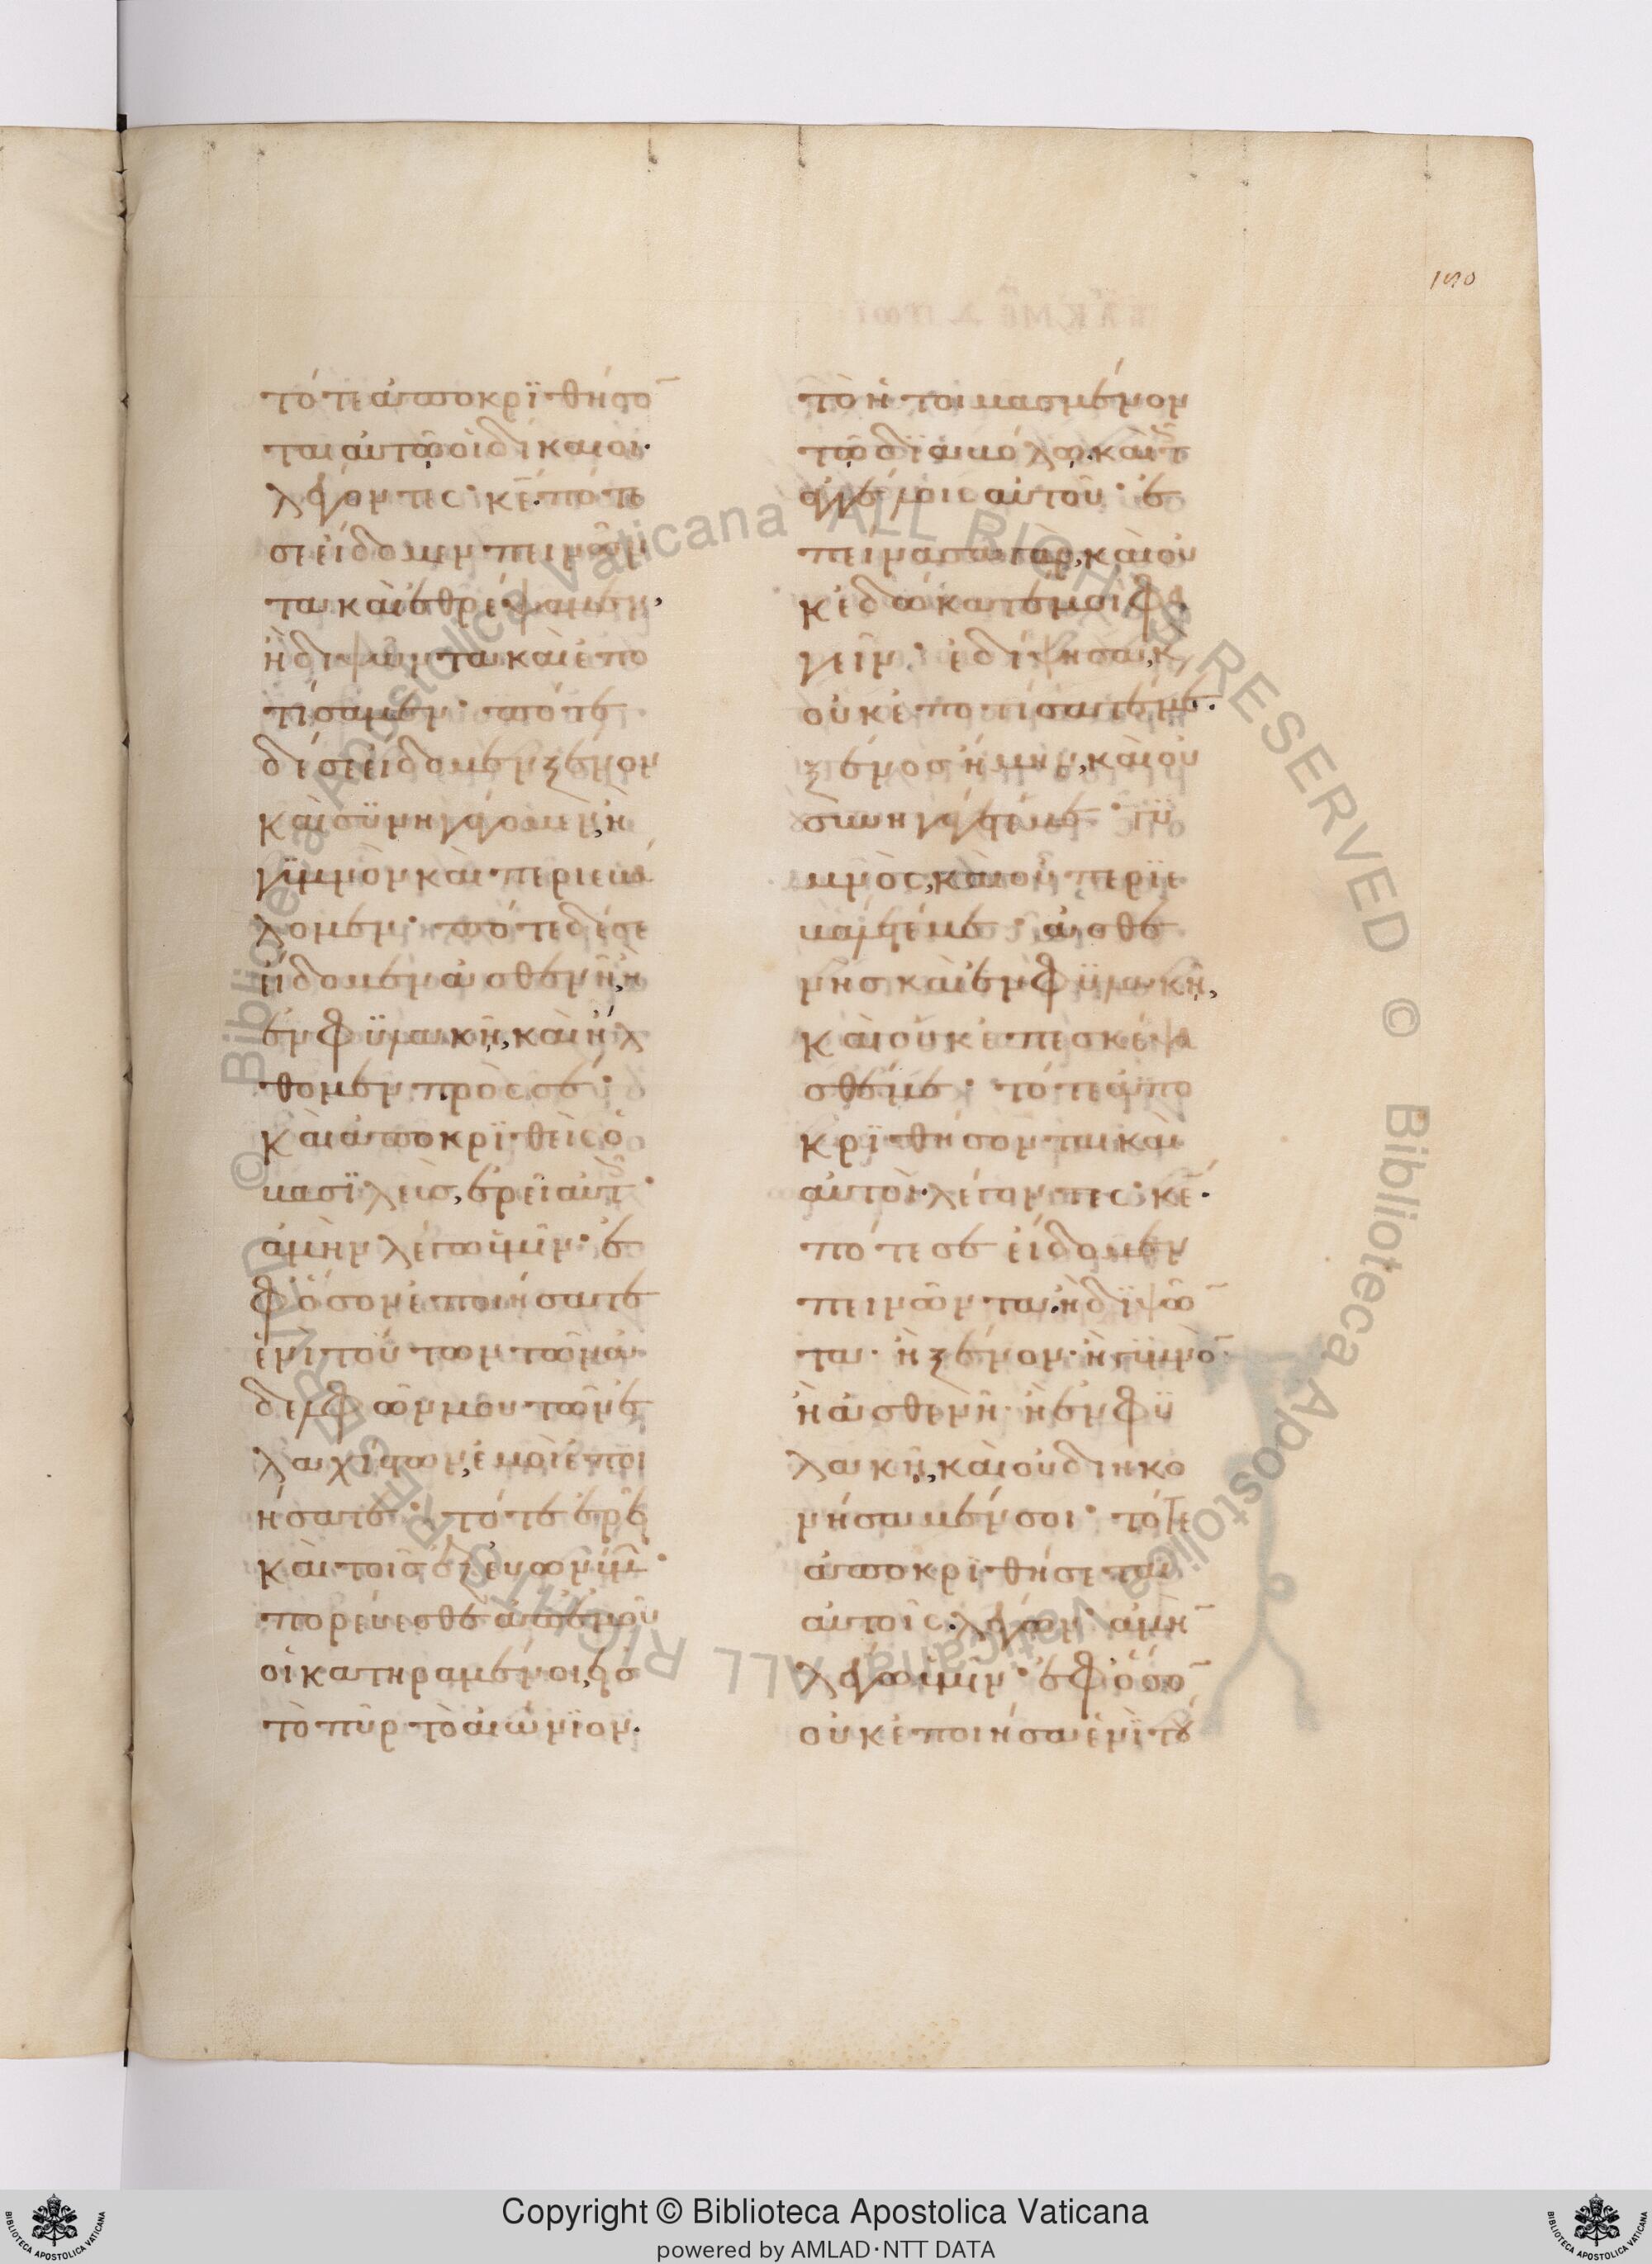 190
τότε ἀποκρϊθήσο̅
ται αὐτῶ οἱ δίκαιοι·
λέγοντες· κ̅ε̅· πότε
σὲ εἴδομεν πεινῶν
τα καὶ ἐθρέψαμεν,
ἢ διψῶντα καὶ ἐπο
τίσαμεν· πότε
δέ σε εἴδομεν ξένον
καὶ συνηγάγομεν, ἢ
γϋμνὸν καὶ περιεβά
λομεν· πότε δέ σε
εἴδομεν ἀσθενῆ, ἢ
ἐν φϋλακῆ, καὶ ἤλ
θομεν πρὸς σέ·
καὶ ἀποκρϊθεὶς ὁ
βασϊλεὺς, ἐρεῖ αὐτ·
ἀμὴν λέγω ὑμῖν· ἐ
φ ὅσον ἐποιήσατε
ἑνὶ τούτων τῶν ἀ
δελφῶν μου τῶν ἐ
λαχίστων, ἐμοὶ ἐποι
ήσατε· τότε ἐρεῖ
καὶ τοῖς ἐξ εὐωνύμ·
πορεύεσθε ἀπ ἐμοῦ
οἱ κατηραμένοι, εἰς
τὸ πῦρ τὸ αἰώνϊον·
τὸ ἡτοιμασμένον
τῶ δϊαβόλω· καὶ τ
ἀγγέλοις αὐτοῦ· ἐ
πείνασα γὰρ, καὶ οὐ
κ ἐδώκατέ μοι φα
γεῖν· ἐδίψησα, κ
οὐκ ἐποτίσατέ με·
ξένος ἤμην, καὶ οὐ
συνηγάγετέ με· γϋ
μνὸς, καὶ οὐ περϊε
βάλετέ με· ἀσθε
νὴς καὶ ἐν φϋλακῆ,
καὶ οὐκ ἐπεσκέψα
σθέ με· τότε ἀπο
κρϊθήσονται καὶ
αὐτοὶ λέγοντες· κ̅ε̅·
πότε σε εἴδομεν
πεινῶντα· ἢ δϊψῶ̅
τα· ἢ ξένον· ἢ γϋμνὸ̅·
ἢ ἀσθενῆ· ἢ ἐν φϋ
λακῆ, καὶ οὐ διηκο
νήσαμέν σοι· τότε
ἀποκρϊθήσεται
αὐτοῖς· λέγων· ἀμὴ̅
λέγω ὑμῖν· ἐφ ὅσο̅
οὐκ ἐποιήσατε ἑνὶ τού
© Biblioteca Apostolica Vaticana ALL RIGHTS RESERVED © Biblioteca Apostolica Vaticana ALL RIGHTS RESERVED
Copyright © Biblioteca Apostolica Vaticana
powered by AMLAD·NTT DATA
BIBLIOTECA APOSTOLICA VATICANA
BIBLIOTECA APOSTOLICA VATICANA